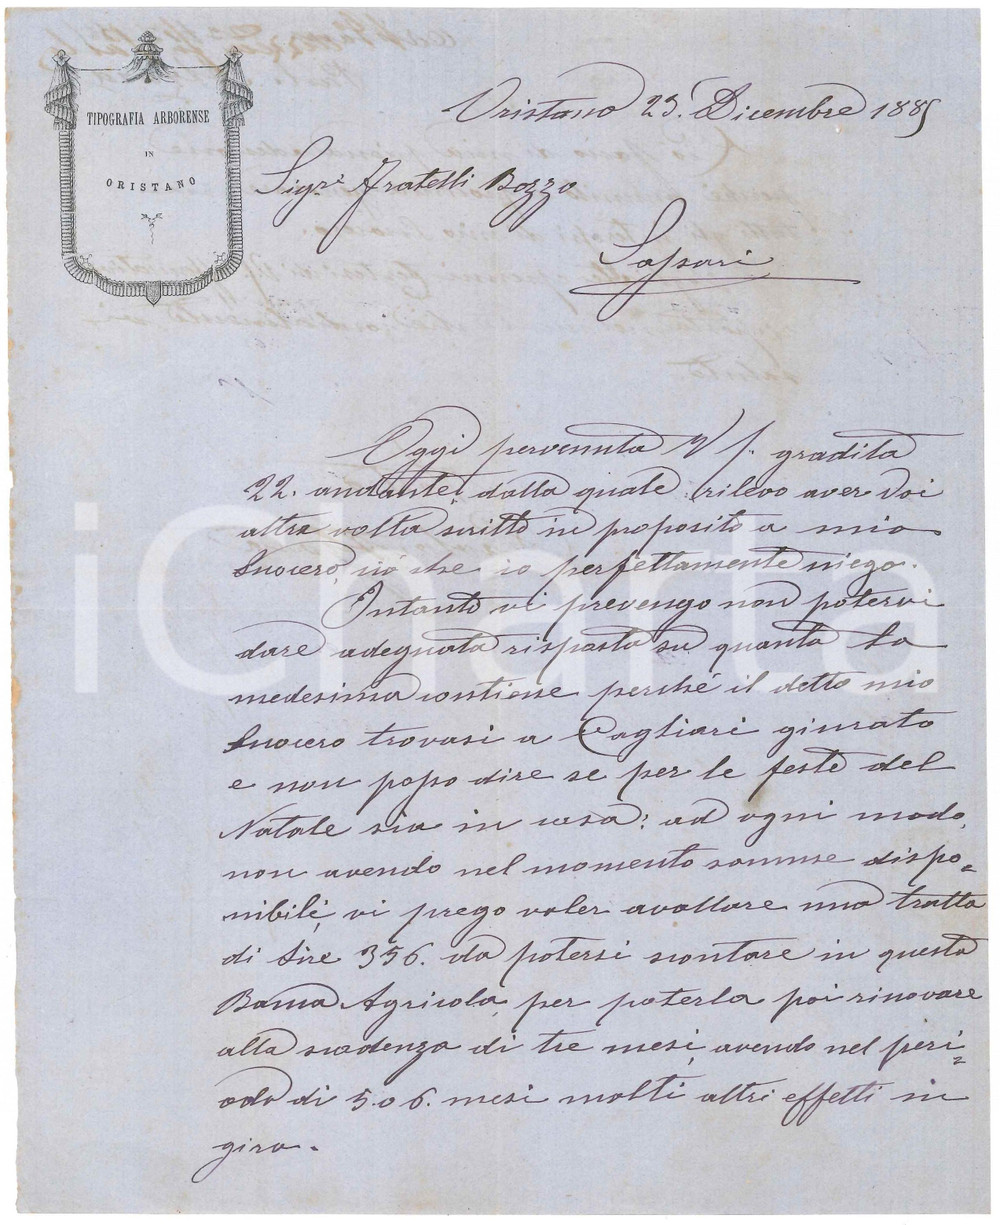 TIPOGRAFIA ARBORENSE
IN
ORISTANO
Oristano 23. Dicembre 1885
Sigri Fratelli Bozzo
Sassari
Oggi pervenuta V/ gradita
22. andante, dalla quale rilevo aver Voi
altra volta scritto in proposito a mio
Suocero, ciò che io perfettamente niego.
Intanto vi prevengo non potervi
dare adeguata risposta su quanto La
medesima contiene perché il detto mio
Suocero trovasi a Cagliari giurato
e non posso dire se per le feste del
Natale sia in casa: ad ogni modo,
non avendo nel momento somme dispo=
nibili, vi prego voler avallare una tratta
di Lire 356. da potersi scontare in questa
Banca Agricola, per poterla poi rinovare
alla scadenza di tre mesi, avendo nel peri=
odo di 5 o 6. mesi molti altri effetti in
giro.
iCharta